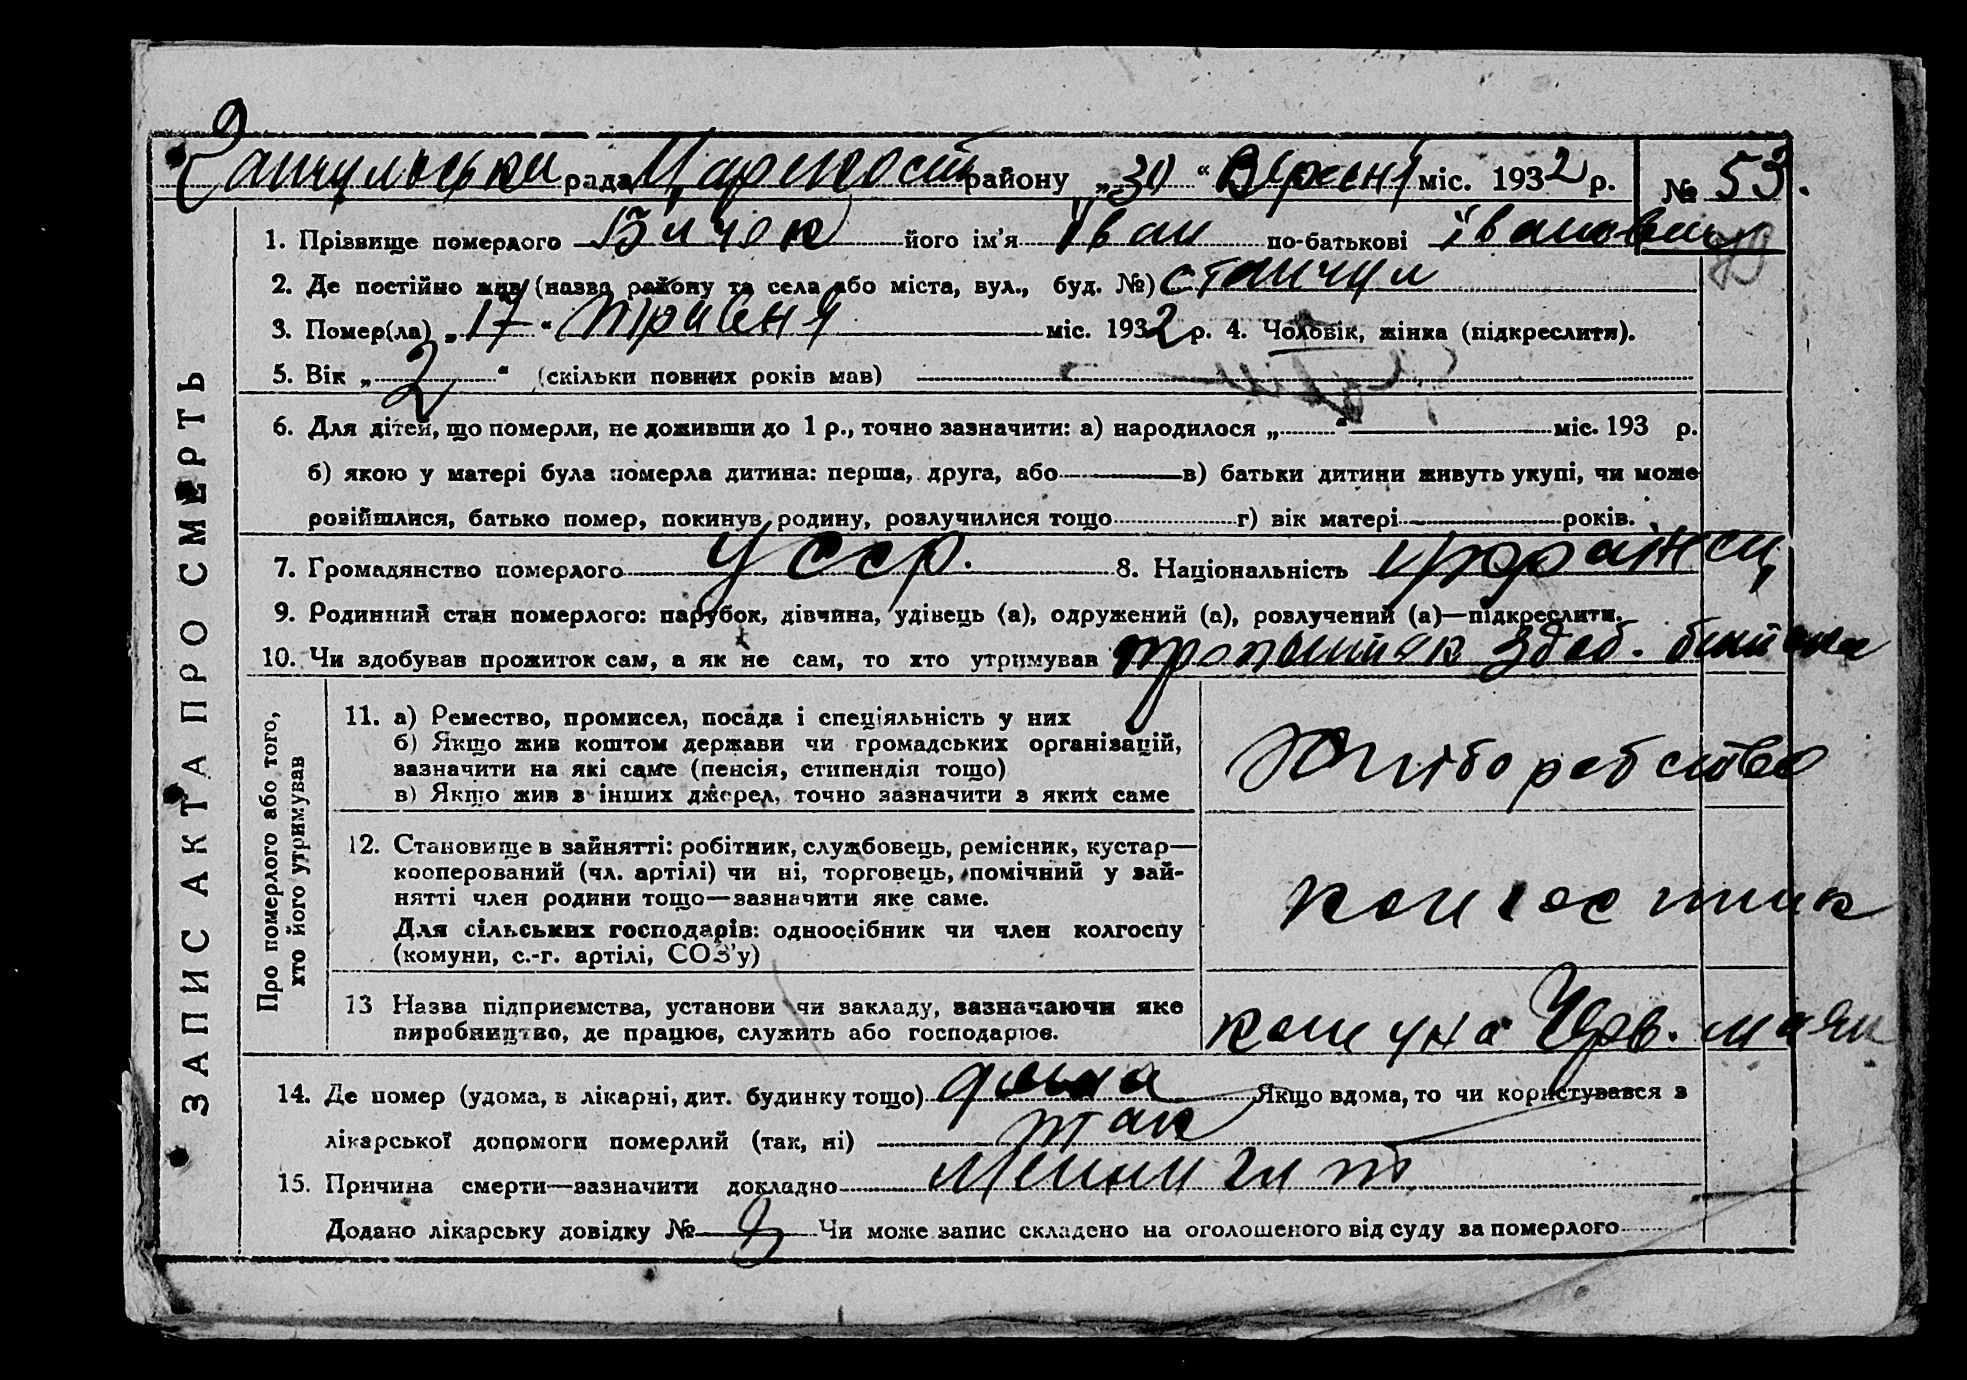 рада району „30“ Вересня міс. 1932 р. № 53.
1. Прізвище померлого Бичек його ім'я Іван по-батькові Іванович
2. Де постійно жив (назва району та села або міста, вул., буд. №) Станчул
3. Помер(ла) „17“ Травня міс. 1932 р. 4. Чоловік, жінка (підкреслити).
5. Вік „2“ (скільки повних років мав)
6. Для дітей, що померли, не доживши до 1 р., точно зазначити: а) народилося „ “ міс. 193 р.
б) якою у матері була померла дитина: перша, друга, або в) батьки дитини живуть укупі, чи може
розійшлися, батько помер, покинув родину, розлучилися тощо г) вік матері років.
7. Громадянство померлого УССР. 8. Національність
9. Родинний стан померлого: парубок, дівчина, удівець (а), одружений (а), розлучений (а)—підкреслити.
10. Чи здобував прожиток сам, а як не сам, то хто утримував здоб.
ЗАПИС АКТА ПРО СМЕРТЬ
Про померлого або того, хто його утримував
11. а) Ремество, промисел, посада і спеціяльність у них
б) Якщо жив коштом держави чи громадських організацій,
зазначити на які саме (пенсія, стипендія тощо)
в) Якщо жив з інших джерел, точно зазначити з яких саме
Хліборобство
12. Становище в зайнятті: робітник, службовець, ремісник, кустар—
кооперований (чл. артілі) чи ні, торговець, помічний у зай-
нятті член родини тощо—зазначити яке саме.
Для сільських господарів: одноосібник чи член колгоспу
(комуни, с.-г. артілі, СОЗ'у)
колгоспник
13 Назва підприємства, установи чи закладу, зазначаючи яке
виробництво, де працює, служить або господарює.
комуна Черв. маяк
14. Де помер (удома, в лікарні, дит. будинку тощо) дома Якщо вдома, то чи користувався з
лікарської допомоги померлий (так, ні) так
15. Причина смерти—зазначити докладно Менингит
Додано лікарську довідку № Чи може запис складено на оголошеного від суду за померлого